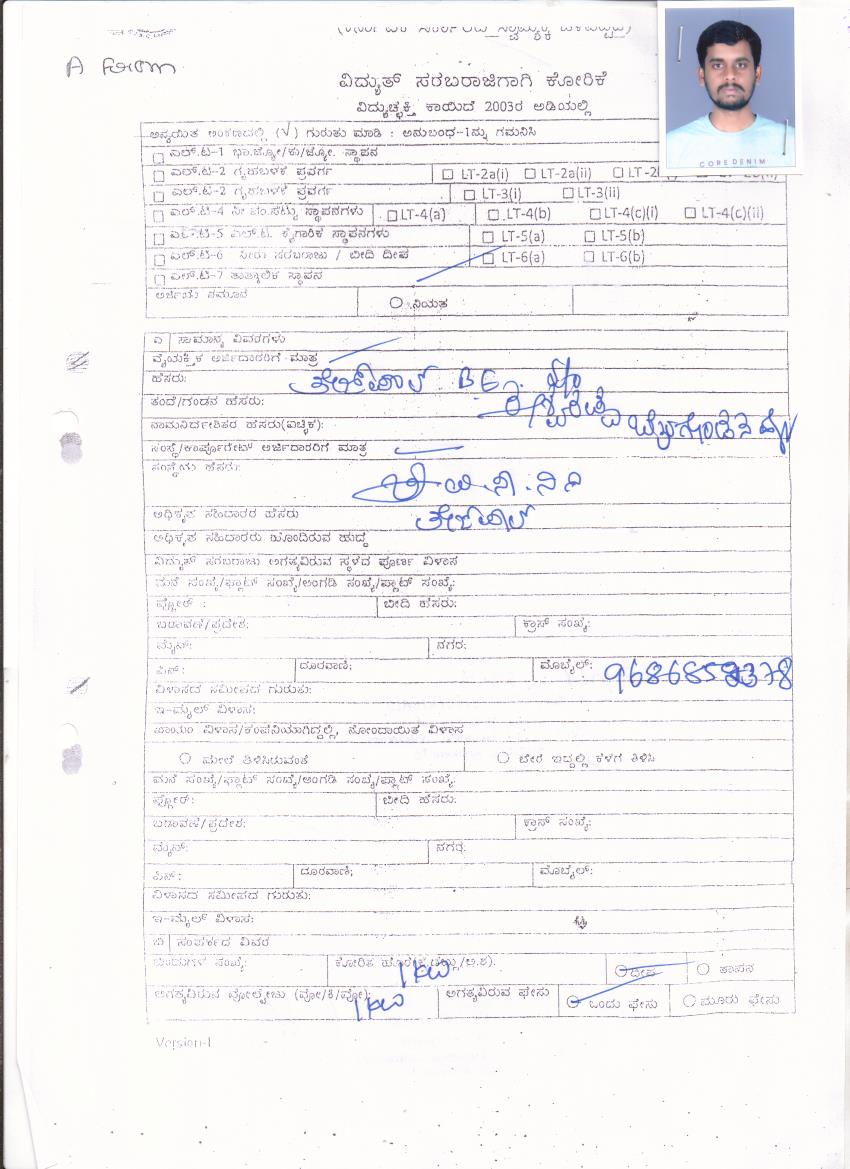 A Form
ವಿದ್ಯುತ್ ಸರಬರಾಜಿಗಾಗಿ ಕೋರಿಕೆ
ವಿದ್ಯುಚ್ಛಕ್ತಿ ಕಾಯಿದೆ 2003ರ ಅಡಿಯಲ್ಲಿ
CORE DENIM
ಅನ್ವಯಿತ ಅಂಕಣದಲ್ಲಿ (√) ಗುರುತು ಮಾಡಿ : ಅನುಬಂಧ-1ನ್ನು ಗಮನಿಸಿ
ಎಲ್.ಟಿ-1 ಭಾ.ಜ್ಯೋ/ಕು/ಜ್ಯೋ. ಸ್ಥಾಪನ
ಎಲ್.ಟಿ-2 ಗೃಹಬಳಕೆ ಪ್ರವರ್ಗ LT-2a(i) LT-2a(ii)
ಎಲ್.ಟಿ-2 ಗೃಹಬಳಕೆ ಪ್ರವರ್ಗ LT-3(i) LT-3(ii)
ಎಲ್.ಟಿ-4 ನೀ.ಪಂ.ಸೆಟ್ಟು ಸ್ಥಾಪನಗಳು LT-4(a) LT-4(b) LT-4(c)(i) LT-4(c)(ii)
ಎಲ್.ಟಿ-5 ಎಲ್.ಟಿ. ಕೈಗಾರಿಕೆ ಸ್ಥಾಪನಗಳು LT-5(a) LT-5(b)
ಎಲ್.ಟಿ-6 ನೀರು ಸರಬರಾಜು / ಬೀದಿ ದೀಪ LT-6(a) LT-6(b)
ಎಲ್.ಟಿ-7 ತಾತ್ಕಾಲಿಕ ಸ್ಥಾಪನ
ಅರ್ಜಿಯ ನಮೂನೆ ನಿಯತ
ಎ ಸಾಮಾನ್ಯ ವಿವರಗಳು
ವೈಯಕ್ತಿಕ ಅರ್ಜಿದಾರರಿಗೆ ಮಾತ್ರ
ಹೆಸರು: ತೇಜ್‌ಪಾಲ್ B E
ತಂದೆ/ಗಂಡನ ಹೆಸರು:
ನಾಮನಿರ್ದೇಶಿತರ ಹೆಸರು(ಐಚ್ಛಿಕ):
ಸಂಸ್ಥೆ/ಕಾರ್ಪೊರೇಟ್ ಅರ್ಜಿದಾರರಿಗೆ ಮಾತ್ರ
ಸಂಸ್ಥೆಯ ಹೆಸರು:
ಅಧಿಕೃತ ಸಹಿದಾರರ ಹೆಸರು ತೇಜ್‌ಪಾಲ್
ಅಧಿಕೃತ ಸಹಿದಾರರು ಹೊಂದಿರುವ ಹುದ್ದೆ
ವಿದ್ಯುತ್ ಸರಬರಾಜು ಅಗತ್ಯವಿರುವ ಸ್ಥಳದ ಪೂರ್ಣ ವಿಳಾಸ
ಮನೆ ಸಂಖ್ಯೆ/ಫ್ಲಾಟ್ ಸಂಖ್ಯೆ/ಅಂಗಡಿ ಸಂಖ್ಯೆ/ಪ್ಲಾಟ್ ಸಂಖ್ಯೆ:
ಫ್ಲೋರ್ : ಬೀದಿ ಹೆಸರು:
ಬಡಾವಣೆ/ಪ್ರದೇಶ: ಕ್ರಾಸ್ ಸಂಖ್ಯೆ:
ಮೈನ್: ನಗರ:
ಪಿನ್: ದೂರವಾಣಿ: ಮೊಬೈಲ್:
ವಿಳಾಸದ ಸಮೀಪದ ಗುರುತು:
ಇ-ಮೈಲ್ ವಿಳಾಸ:
ಖಾಯಂ ವಿಳಾಸ/ಕಂಪೆನಿಯಾಗಿದ್ದಲ್ಲಿ, ನೋಂದಾಯಿತ ವಿಳಾಸ
ಮೇಲೆ ತಿಳಿಸಿರುವಂತೆ ಬೇರೆ ಇದ್ದಲ್ಲಿ ಕೆಳಗೆ ತಿಳಿಸಿ
ಮನೆ ಸಂಖ್ಯೆ/ಫ್ಲಾಟ್ ಸಂಖ್ಯೆ/ಅಂಗಡಿ ಸಂಖ್ಯೆ/ಪ್ಲಾಟ್ ಸಂಖ್ಯೆ:
ಫ್ಲೋರ್: ಬೀದಿ ಹೆಸರು:
ಬಡಾವಣೆ/ಪ್ರದೇಶ: ಕ್ರಾಸ್ ಸಂಖ್ಯೆ:
ಮೈನ್: ನಗರ:
ಪಿನ್: ದೂರವಾಣಿ: ಮೊಬೈಲ್:
ವಿಳಾಸದ ಸಮೀಪದ ಗುರುತು:
ಇ-ಮೈಲ್ ವಿಳಾಸ:
ಬಿ ಸಂಪರ್ಕದ ವಿವರ
ಕೋರಿಕೆ 1 KW ದೀಪ ತಾಪನ
ಅಗತ್ಯವಿರುವ ವೋಲ್ಟೇಜು (ವೋ/ಕಿ/ವೋ): 1 KW ಅಗತ್ಯವಿರುವ ಫೇಸು ಒಂದು ಫೇಸು ಮೂರು ಫೇಸು
Version-1